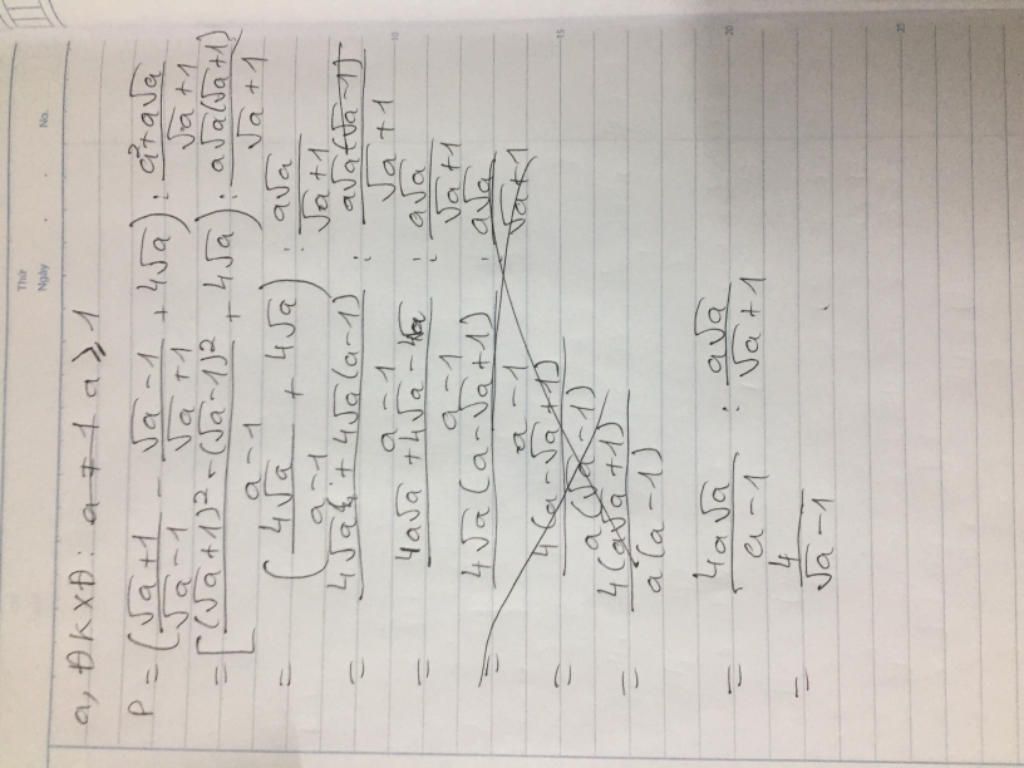 Thứ
Ngày . . No.
a, ĐKXĐ: a ≠ 1 a ≥ 1
P = (\frac{√a+1}{√a-1} - \frac{√a-1}{√a+1} + 4√a) : \frac{a²+a√a}{√a+1}
= [\frac{(√a+1)² - (√a-1)²}{a-1} + 4√a) : \frac{a√a(√a+1)}{√a+1}
= (\frac{4√a}{a-1} + 4√a) : \frac{a√a}{√a+1}
= \frac{4√a + 4√a(a-1)}{a-1} : \frac{a√a(√a-1)}{√a+1}
= \frac{4a√a + 4√a - 4√a}{a-1} : \frac{a√a}{√a+1}
= \frac{4√a(a-√a+1)}{a-1} : \frac{a√a}{√a+1}
= \frac{4(a-√a+1)}{a(√a-1)}
= \frac{4(a√a+1)}{a(a-1)}
= \frac{4a√a}{a-1} : \frac{a√a}{√a+1}
= \frac{4}{√a-1}
10
15
20
25